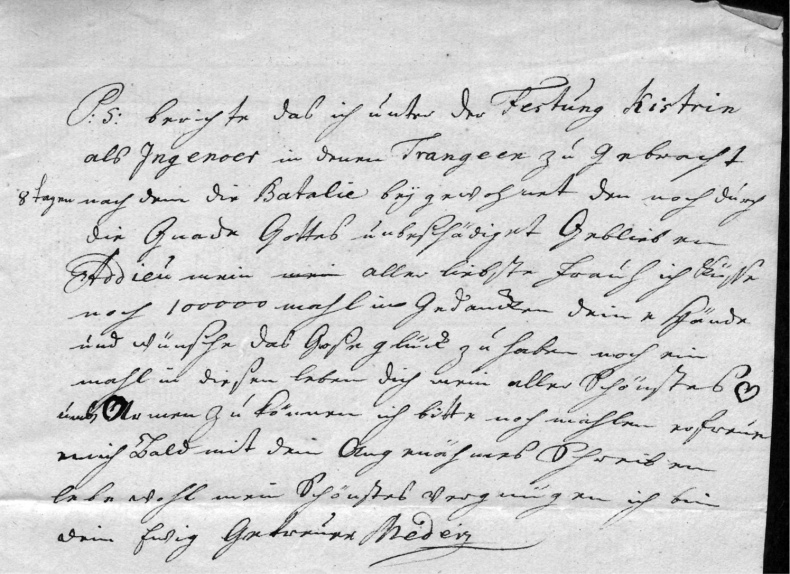 P: S: berichte das ich unter der Festung Kistrin
als Ingenoer in denen Trangeen zu gebracht
8 tagen nach dem die Batalie beÿ gewohnet den noch durch
die Gnade Gottes unbeschädiget Geblieben
Addieu mein mein aller liebste Frauh ich Küsse
noch 100000 mahl in Gedancken deine Hände
und wünsche das Gose glück zu haben noch ein
mahl in diesen leben dich mein aller Schönstes ♡
umb Armen zu können ich bitte noch mahlen erfreue
mich Bald mit dein Angenähmes Schreiben
lebe wohl mein Schönstes vergnügen ich bin
dein Ewig Getreuer